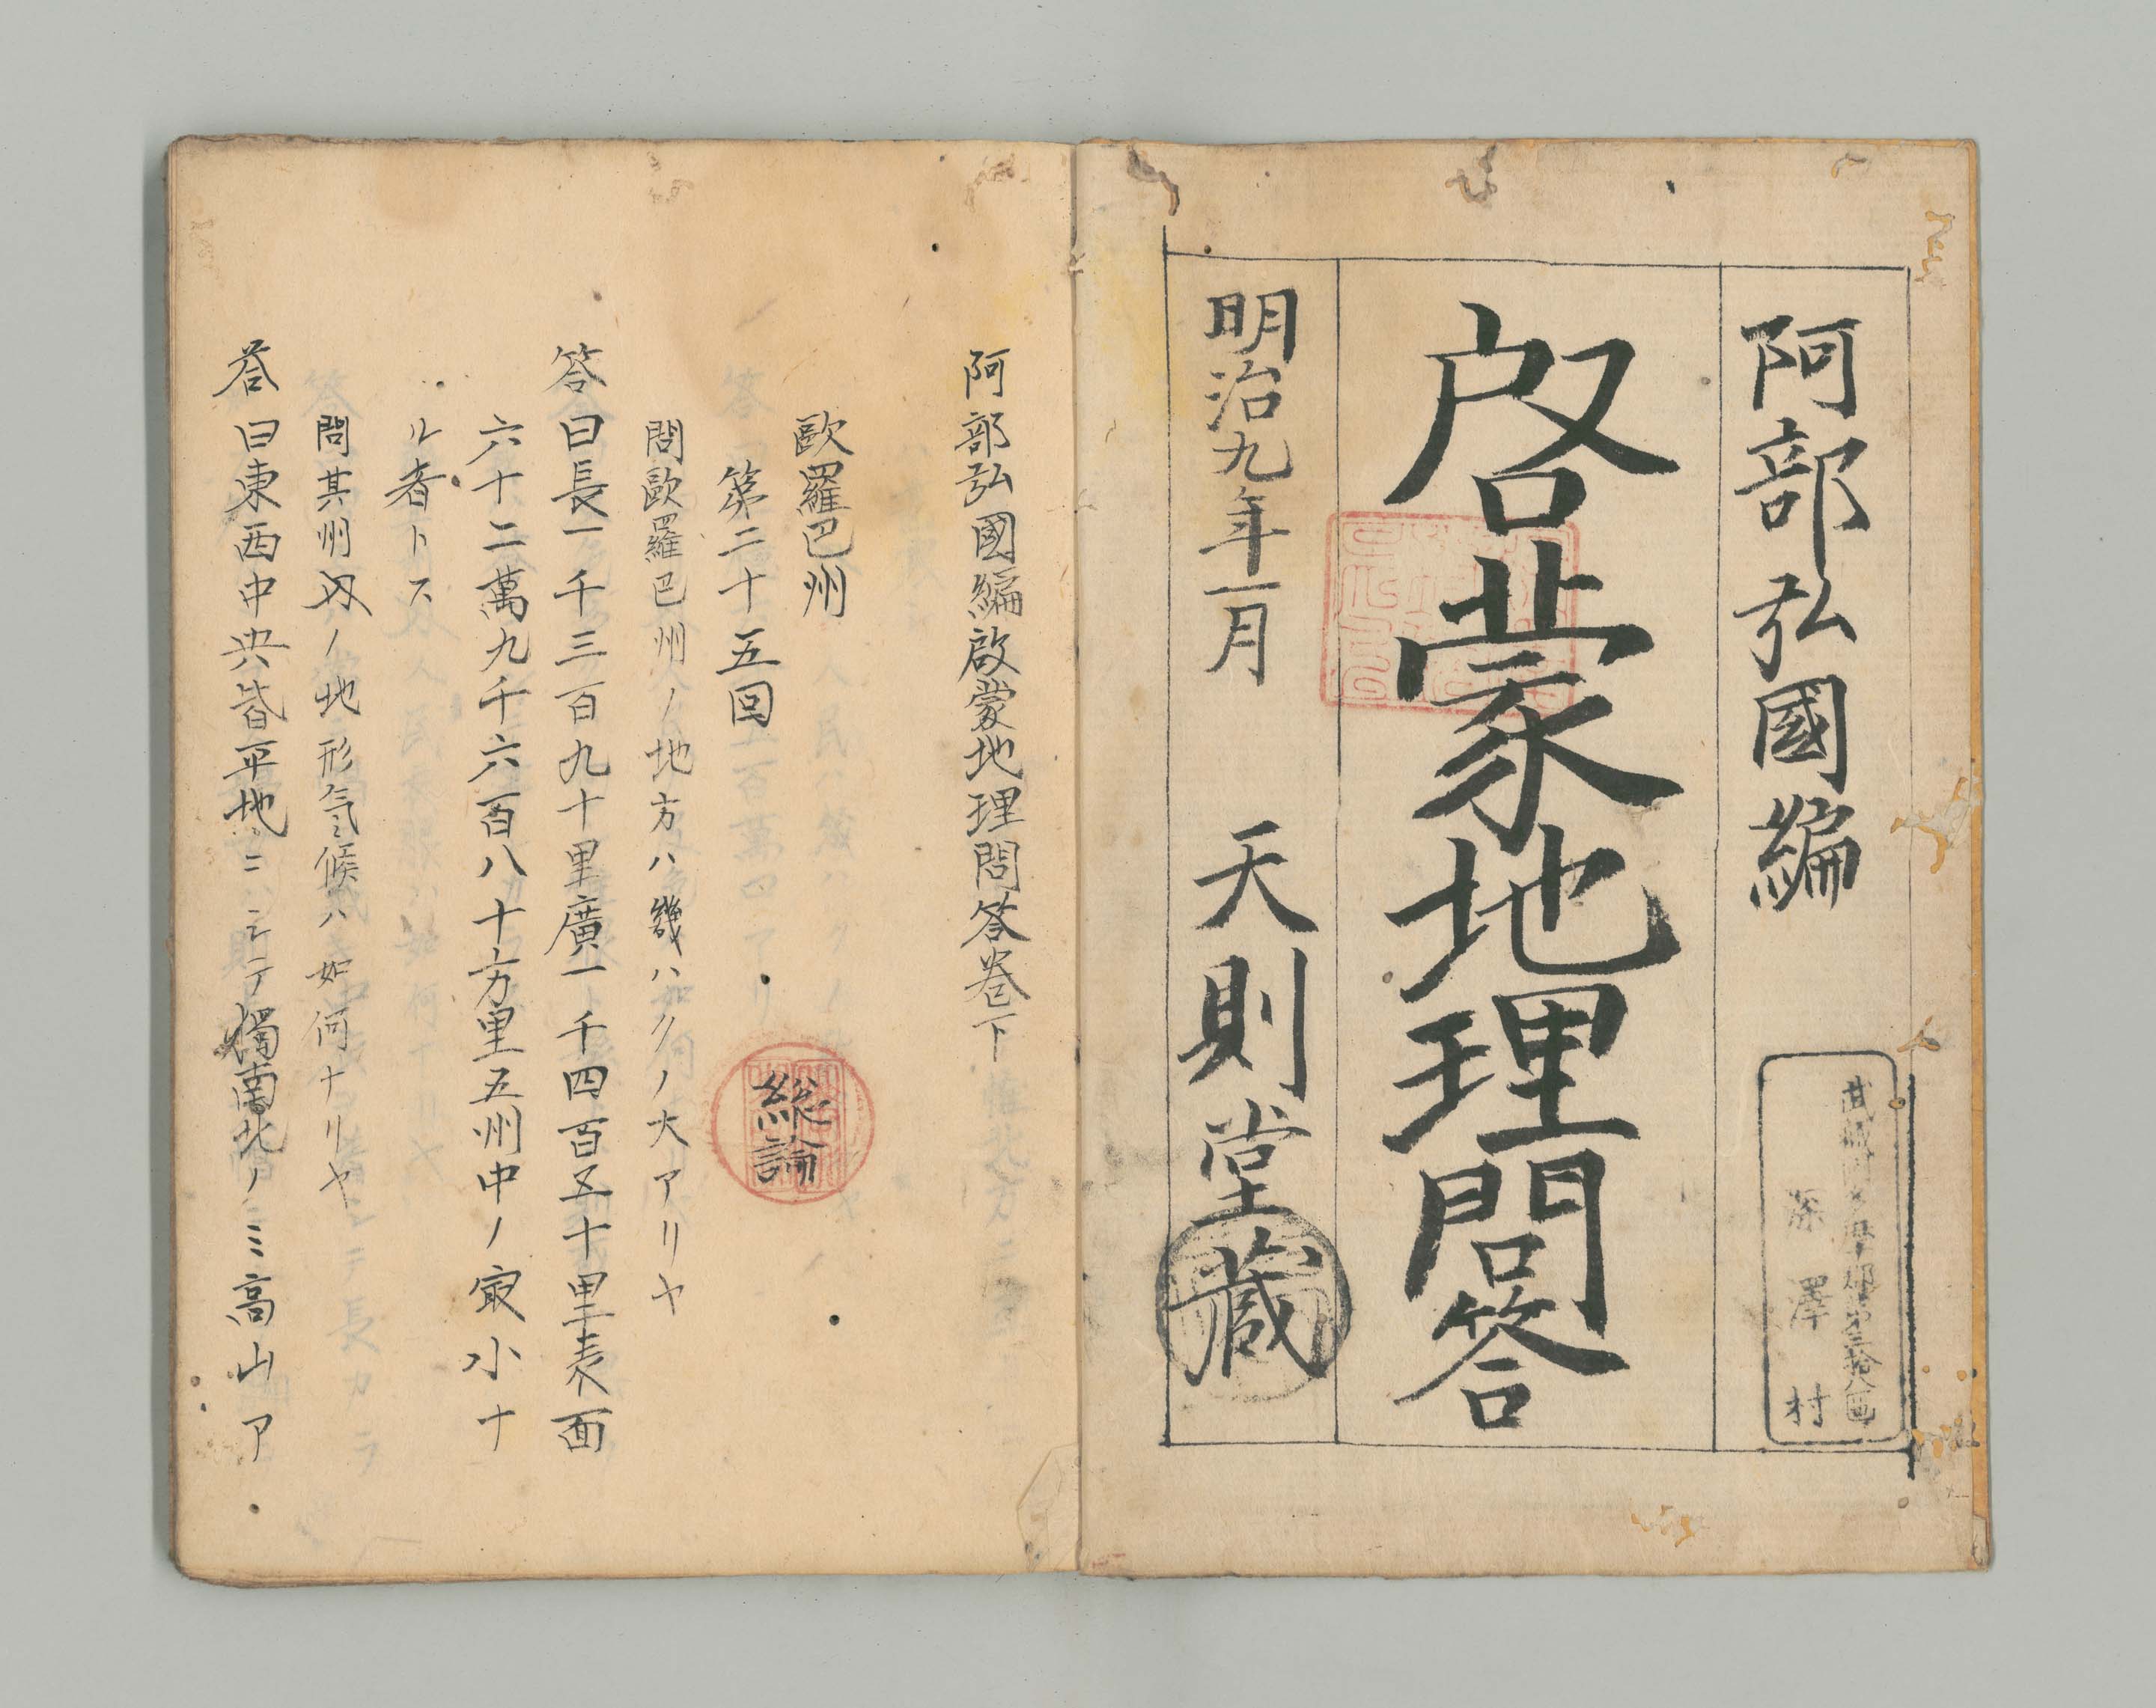 阿部弘國編
武藏國多摩郡第三拾八區
深澤村
啓蒙地理問答
明治九年一月　天則堂藏
阿部弘國編啟蒙地理問答卷下
歐羅巴州
第二十五回　総論
問歐羅巴州ノ地方ハ幾ハクノ大アリヤ
答曰長一千三百九十里廣一千四百五十里表面
六十二萬九千六百八十方里五州中ノ㝡小ナ
ル者トス
問其州内ノ地形気候ハ如何ナリヤ
荅曰東西中央皆平地ニシテ獨南北ノミ高山ア